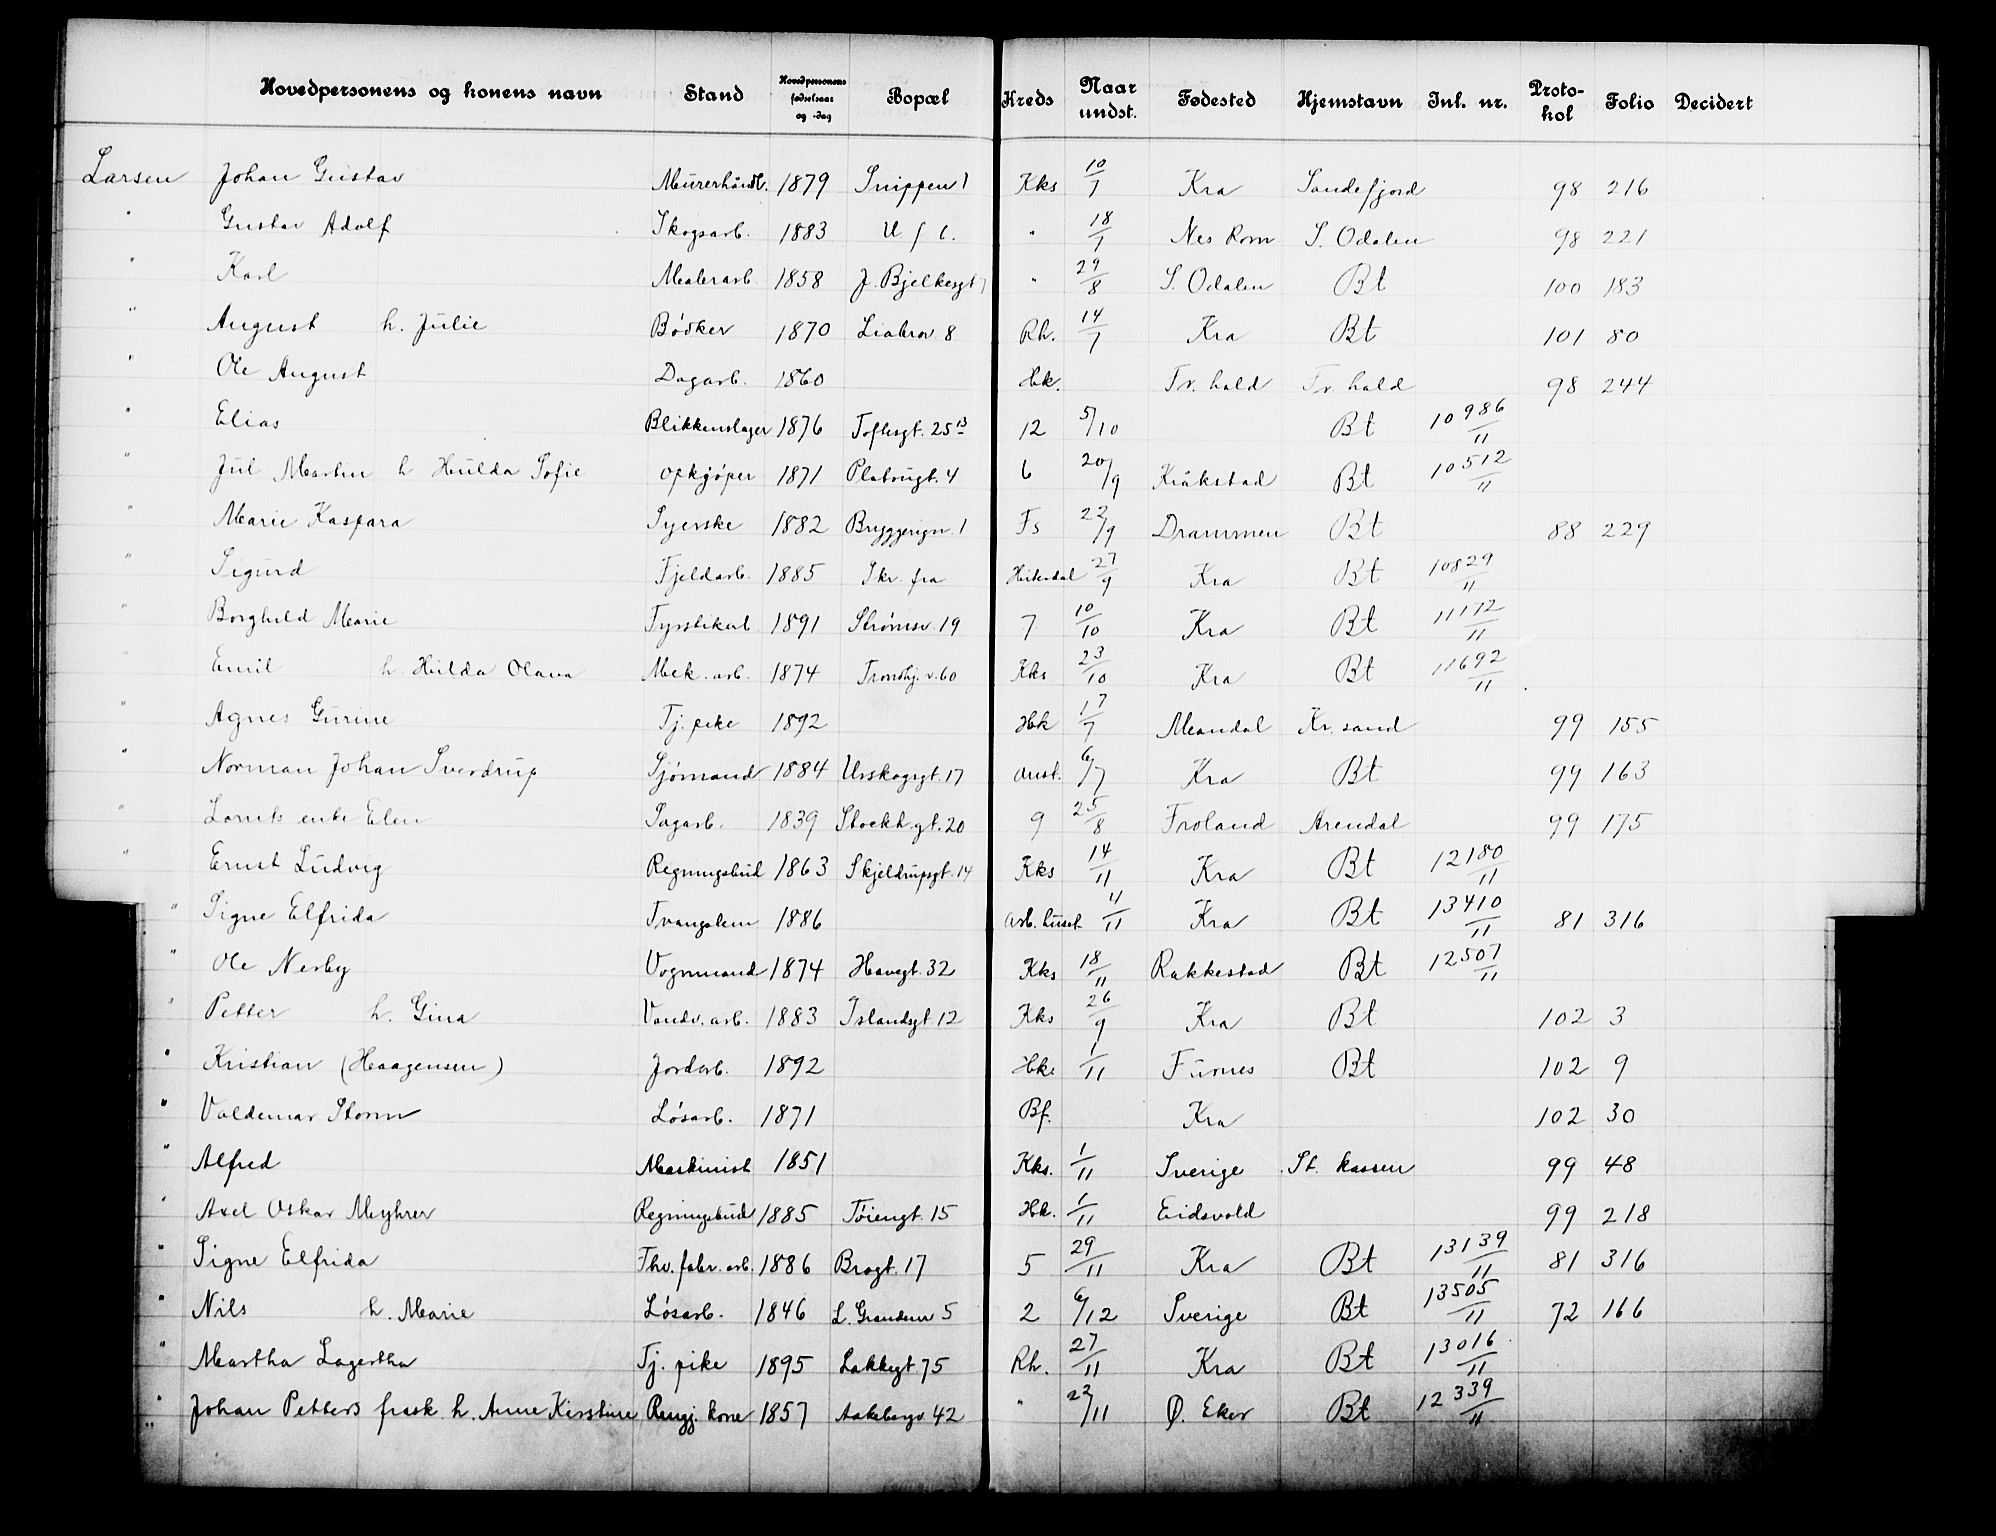 Hovedpersonens og konens navn Stand Hovedpersonens fødselsaar og -dag Bopæl Kreds Naar undst. Fødested Hjemstavn Inl. nr. Proto-kol Folio Decidert
Larsen Johan Gustav Murerhåndl. 1879 Snippen 1 Kks 10/7 Kra Sandefjord 98 216
" Gustav Adolf Skogsarb. 1883 U f b. " 18/7 Nes Rom S. Odalen 98 221
" Karl Malerarb. 1858 J. Bjelkesgt 7 " 29/8 S. Odalen Bt 100 183
" August h. Julie Bødker 1870 Liabrov 8 Rh. 14/7 Kra Bt 101 80
" Ole August Dagarb. 1860 Hk. Fr. hald Fr. hald 98 244
" Elias Blikkenslager 1876 Toftesgt. 25 B 12 5/10 Bt 10986/11
" Jul Martin h Hulda Sofie opkjøper 1871 Platougt. 4 6 20/9 Kråkstad Bt 10512/11
" Marie Kaspara Syerske 1882 Bryggerign. 1 Fs 22/9 Drammen Bt 88 229
" Sigurd Fjeldarb. 1885 Skr. fra Hiterdal 27/9 Kra Bt 10829/11
" Borghild Marie Fyrstikarb 1891 Strømsv. 19 7 10/10 Kra Bt 11172/11
" Emil h. Hilda Olava Mek. arb. 1874 Trondhj. v. 60 Kks 23/10 Kra Bt 11692/11
" Agnes Gurine Tj. pike 1892 Hk 17/7 Mandal Kr. sand 99 155
" Norman Johan Sverdrup Sjømand 1884 Urskogsgt. 17 Anst. 6/7 Kra Bt 99 163
" Laurits enke Elen Sagarb. 1839 Stockh. gt. 20 9 25/8 Froland Arendal 99 175
" Ernst Ludvig Regningsbud 1863 Skjeldrupsgt. 14 Kks 14/11 Kra Bt 12180/11
" Signe Elfrida Tvangslem 1886 Arb. huset 4/11 Kra Bt 13410/11 81 316
" Ole Nesby Vognmand 1874 Havegt. 32 Kks 18/11 Rakkestad Bt 12507/11
" Petter h. Gina Vandv. arb. 1883 Islandsgt 12 Kks 26/9 Kra Bt 102 3
" Kristian (Haagensen) Jordarb. 1892 Hk. 1/11 Furnes Bt 102 9
" Valdemar Storm Løsarb. 1871 Bf. Kra 102 30
" Alfred Maskinist 1851 Kks. 1/11 Sverige St. kassen 99 48
" Axel Oskar Meyhrer Regningsbud 1885 Tøiengt. 15 Hk. 1/11 Eidsvold 99 218
" Signe Elfrida Thv. fabr. arb. 1886 Brogt. 17 5 29/11 Kra Bt 13139/11 81 316
" Nils h. Marie Løsarb. 1846 L. Grændsen 5 2 6/12 Sverige Bt 13505/11 72 166
" Martha Lagertha Tj. pike 1895 Lakkegt 75 Rh. 27/11 Kra Bt 13016/11
" Johan Petters frask. h. Anne Kirstine Rengj. kone 1857 Aakebergv. 42 " 22/11 Ø. Eker Bt 12339/11